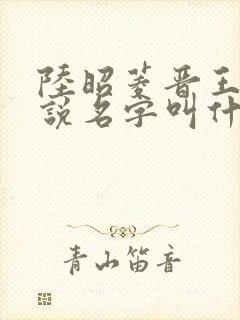 陸昭菱晋王小
說名字叫什
青山笛音